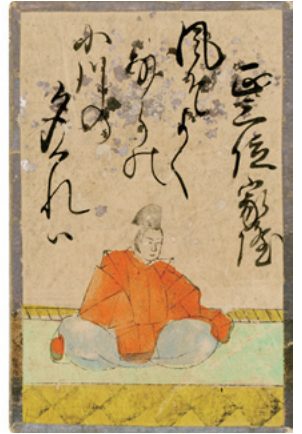 正三位家隆
風そよく
ならの
小川の
夕くれハ